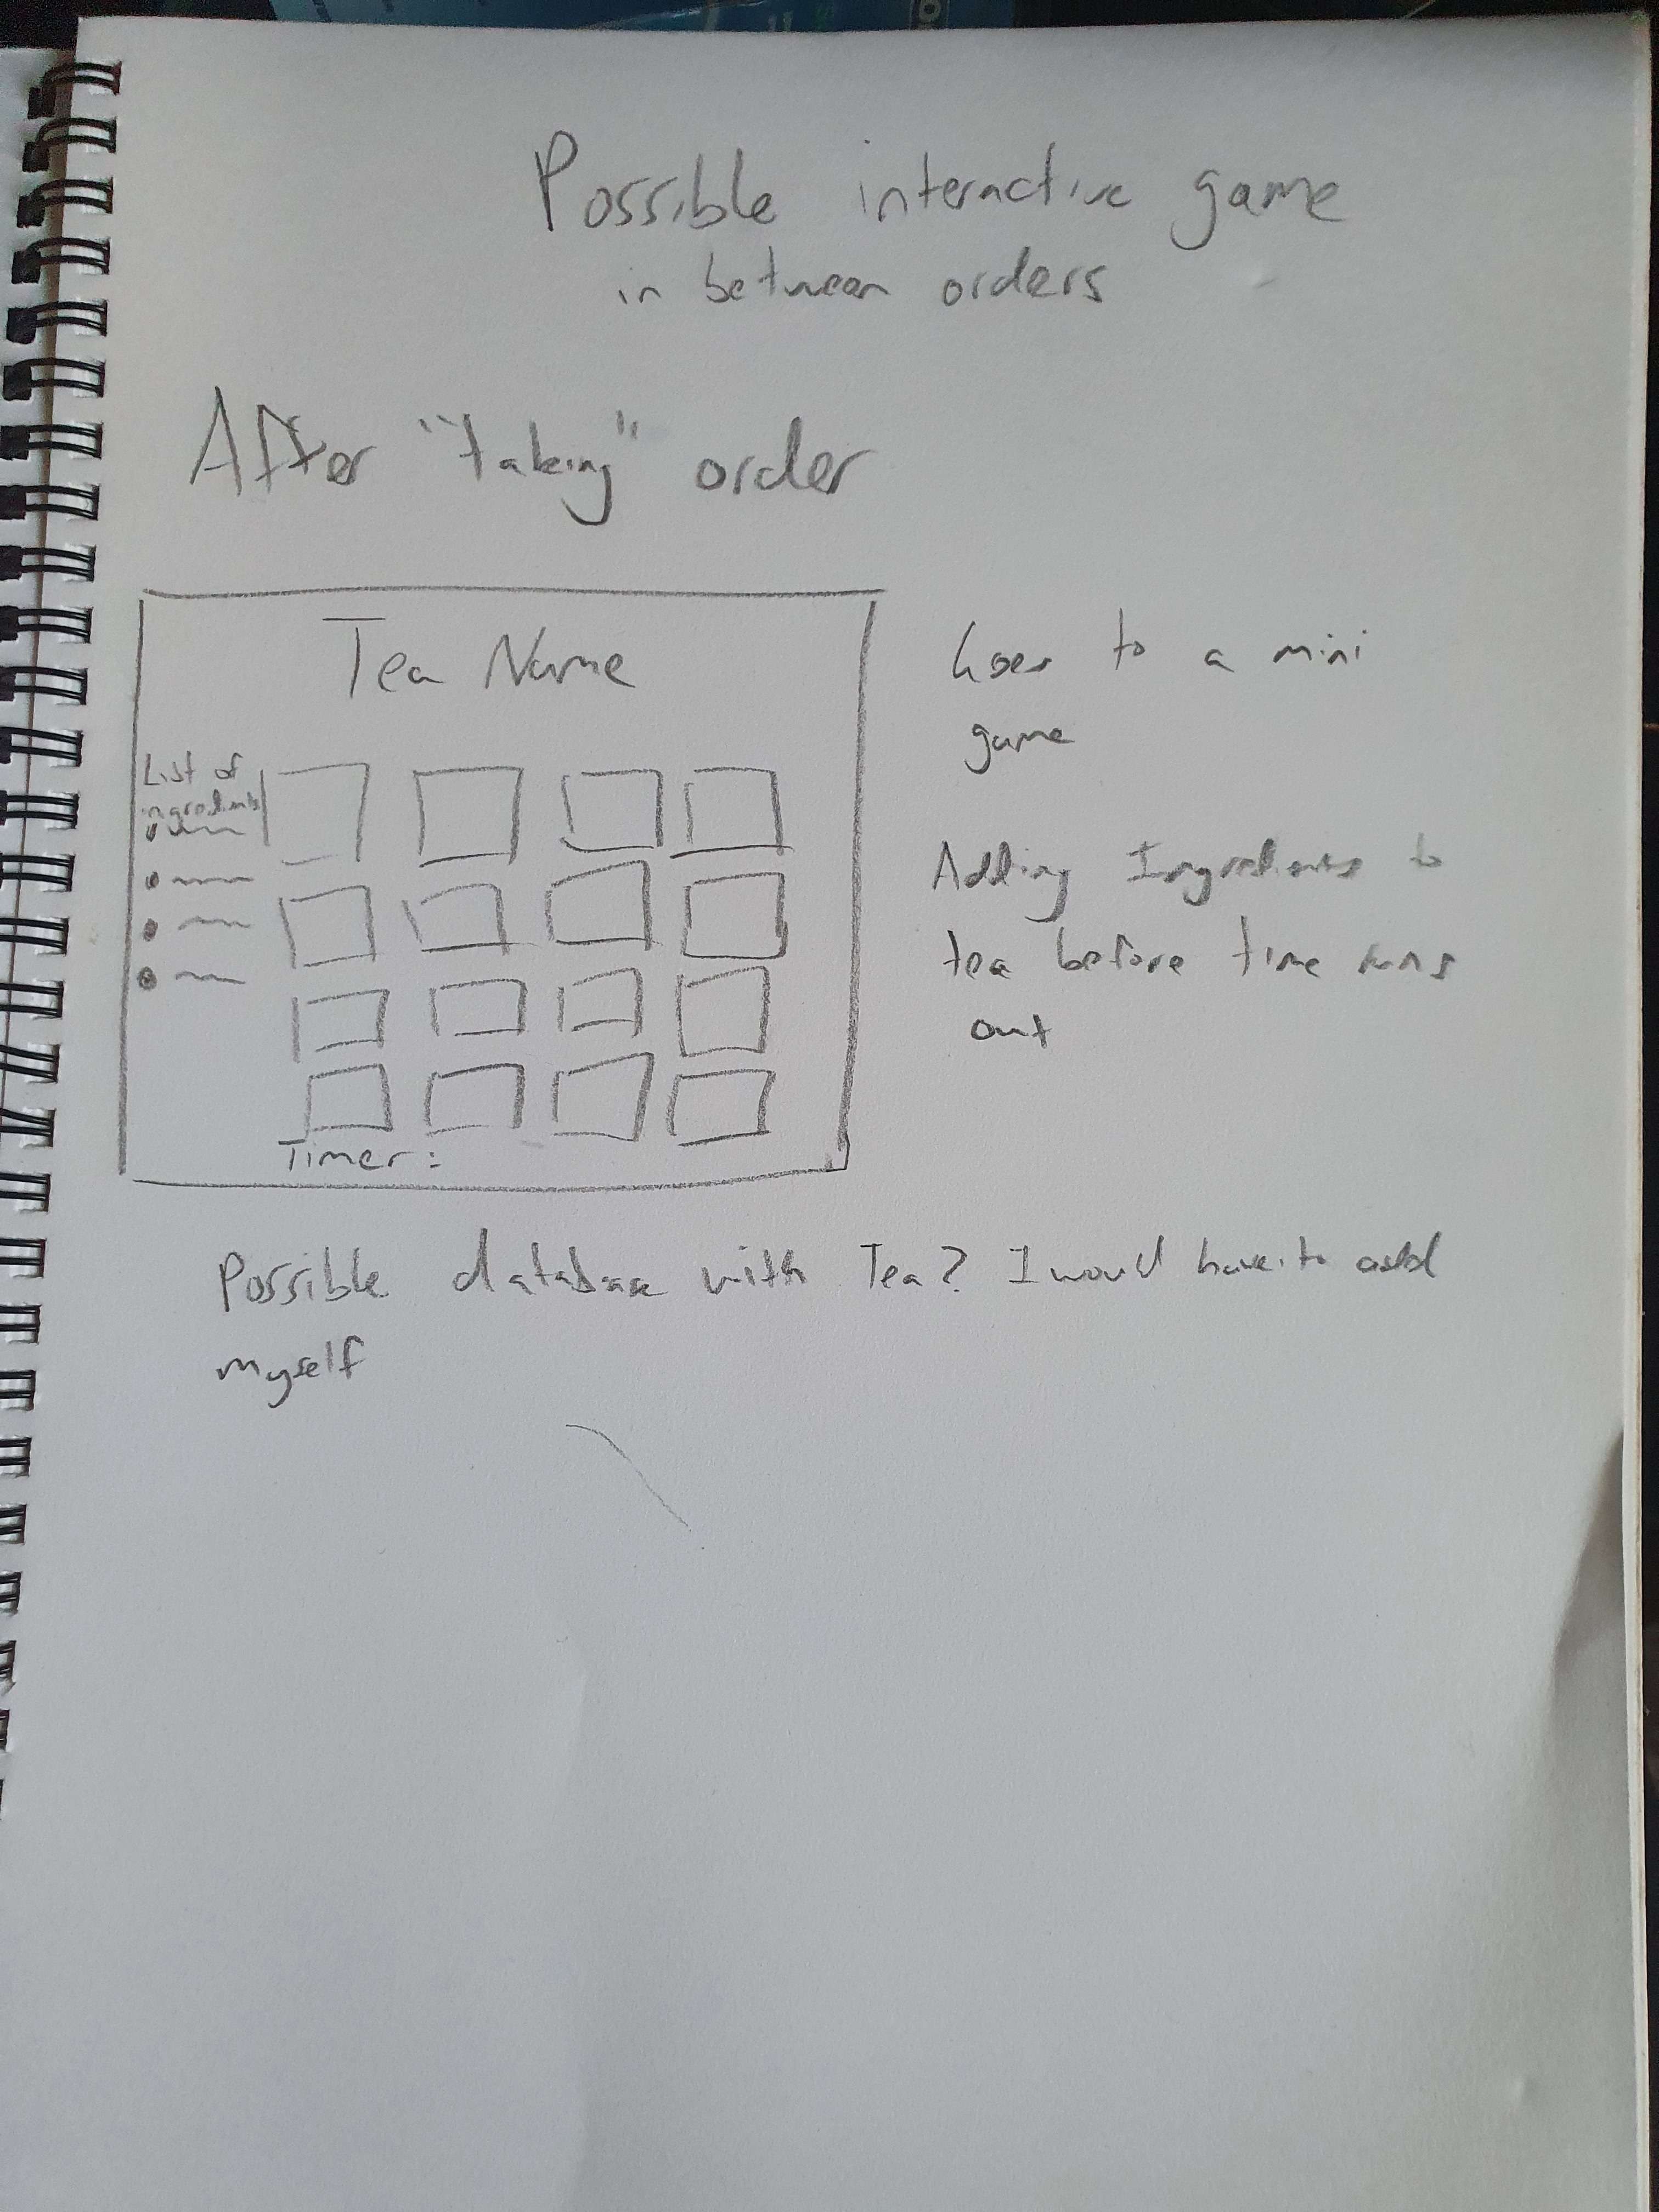 Possible interactive game
in between orders
After "taking" order
Tea Name
List of
ingredients
Timer:
Goes to a mini
game
Adding Ingredients to
tea before time runs
out
Possible database with Tea? I would have to add
myself